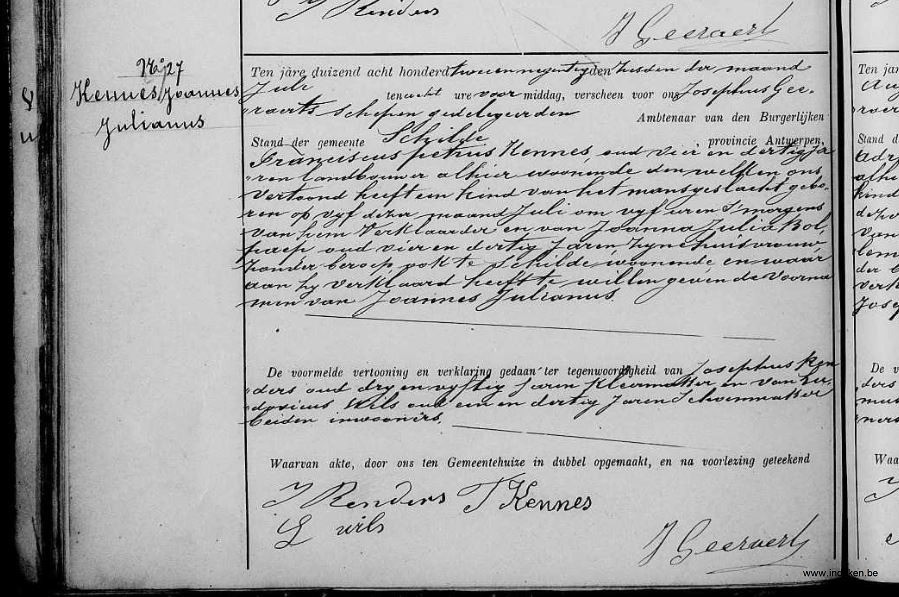 J Renders
J Geeraert
N° 27
Kennes Joannes
Julianus
Ten jare duizend acht honderd twee en negentig den zesden der maand
Juli ten acht ure voor middag, verscheen voor ons Josephus Gee-
raerts schepen gedelegeerden Ambtenaar van den Burgerlijken
Stand der gemeente Schilde provincie Antwerpen,
Franciscus petrus Kennes, oud vier en dertig ja-
ren landbouwer alhier woonende den welken ons
vertoond heeft een kind van het mansgeslacht gebo-
ren op vyf dezer maand Juli om vyf uren 's morgens
van hem Verklaarder en van Joanna Julia Bol
paep oud vier en dertig Jaren zyne huisvrouw
zonder beroep, ook te Schilde woonende en waar
aan hy verklaard heeft te willen geven de voorna
men van Joannes Julianus
De voormelde vertooning en verklaring gedaan ter tegenwoordigheid van Josephus Ren
ders oud dry en vyftig Jaren kleermaker en van Lu-
dovicus Wils oud een en dertig Jaren Schoenmaker
beiden inwooners.
Waarvan akte, door ons ten Gemeentehuize in dubbel opgemaakt, en na voorlezing geteekend
J Renders F Kennes
L wils
J Geeraert